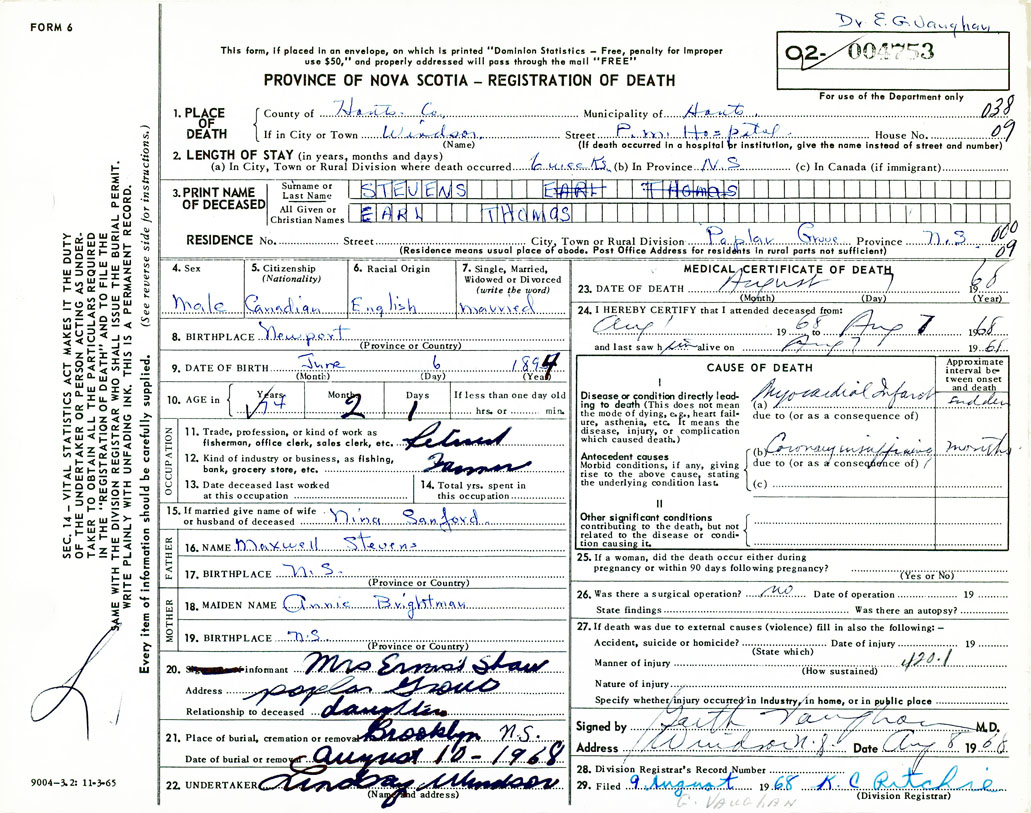 Dr E. G. Vaughan
FORM 6
This form, if placed in an envelope, on which is printed "Dominion Statistics – Free, penalty for improper
use $50," and properly addressed will pass through the mail "FREE"
02- 004753
PROVINCE OF NOVA SCOTIA – REGISTRATION OF DEATH
For use of the Department only
1. PLACE OF DEATH County of Hants Co. Municipality of Hants 038
If in City or Town Windsor Street P.M. Hospital House No. 09
(Name) (If death occurred in a hospital or institution, give the name instead of street and number)
2. LENGTH OF STAY (in years, months and days)
(a) In City, Town or Rural Division where death occurred 6 weeks (b) In Province N.S (c) In Canada (if immigrant)
3. PRINT NAME OF DECEASED Surname or Last Name STEVENS EARL THOMAS
All Given or Christian Names EARL THOMAS
RESIDENCE No. Street City, Town or Rural Division Poplar Grove Province N.S 000
(Residence means usual place of abode. Post Office Address for residents in rural parts not sufficient) 09
SEC. 14 – VITAL STATISTICS ACT MAKES IT THE DUTY
OF THE UNDERTAKER OR PERSON ACTING AS UNDER-
TAKER TO OBTAIN ALL THE PARTICULARS REQUIRED
IN THE "REGISTRATION OF DEATH" AND TO FILE THE
SAME WITH THE DIVISION REGISTRAR WHO SHALL ISSUE THE BURIAL PERMIT.
WRITE PLAINLY WITH UNFADING INK. THIS IS A PERMANENT RECORD.
Every item of information should be carefully supplied. (See reverse side for instructions.)
4. Sex
Male
5. Citizenship
(Nationality)
Canadian
6. Racial Origin
English
7. Single, Married,
Widowed or Divorced
(write the word)
married
8. BIRTHPLACE Newport
(Province or Country)
9. DATE OF BIRTH June 6 1894
(Month) (Day) (Year)
10. AGE in Years Months Days If less than one day old
74 2 1 hrs. or min.
OCCUPATION
11. Trade, profession, or kind of work as
fisherman, office clerk, sales clerk, etc. Retired
12. Kind of industry or business, as fishing,
bank, grocery store, etc. Farmer
13. Date deceased last worked
at this occupation
14. Total yrs. spent in
this occupation
15. If married give name of wife
or husband of deceased Nina Sanford
FATHER
16. NAME Maxwell Stevens
17. BIRTHPLACE N.S.
(Province or Country)
MOTHER
18. MAIDEN NAME Annie Brightman
19. BIRTHPLACE N.S.
(Province or Country)
20. informant Mrs Shaw
Address poplar Grove
Relationship to deceased daughter
21. Place of burial, cremation or removal Brooklyn N.S.
Date of burial or removal August 10 - 1968
22. UNDERTAKER Lindsay Windsor
(Name and address)
9004–3.2: 11-3-65
MEDICAL CERTIFICATE OF DEATH
23. DATE OF DEATH August 7 1968
(Month) (Day) (Year)
24. I HEREBY CERTIFY that I attended deceased from:
Aug 1 1968 to Aug 7 1968
and last saw him alive on Aug 7 1968
CAUSE OF DEATH
Approximate
interval be-
tween onset
and death
I
Disease or condition directly lead-
ing to death (This does not
mean the mode of dying, e.g., heart fail-
ure, asthenia, etc. It means the
disease, injury, or complication
which caused death.)
(a) Myocardial Infarct sudden
due to (or as a consequence of)
Antecedent causes
Morbid conditions, if any, giving
rise to the above cause, stating
the underlying condition last.
(b) Coronary insufficiency months
due to (or as a consequence of)
(c)
II
Other significant conditions
contributing to the death, but not
related to the disease or condi-
tion causing it.
25. If a woman, did the death occur either during
pregnancy or within 90 days following pregnancy?
(Yes or No)
26. Was there a surgical operation? no Date of operation 19
State findings Was there an autopsy?
27. If death was due to external causes (violence) fill in also the following: –
Accident, suicide or homicide? Date of injury 19
(State which)
Manner of injury 420.1
(How sustained)
Nature of injury
Specify whether injury occurred in industry, in home, or in public place
Signed by Garth Vaughan M.D.
Address Windsor N.S. Date Aug 8 1968
28. Division Registrar's Record Number
29. Filed 9 August 1968 K. C Ritchie
(Division Registrar)
G. VAUGHAN